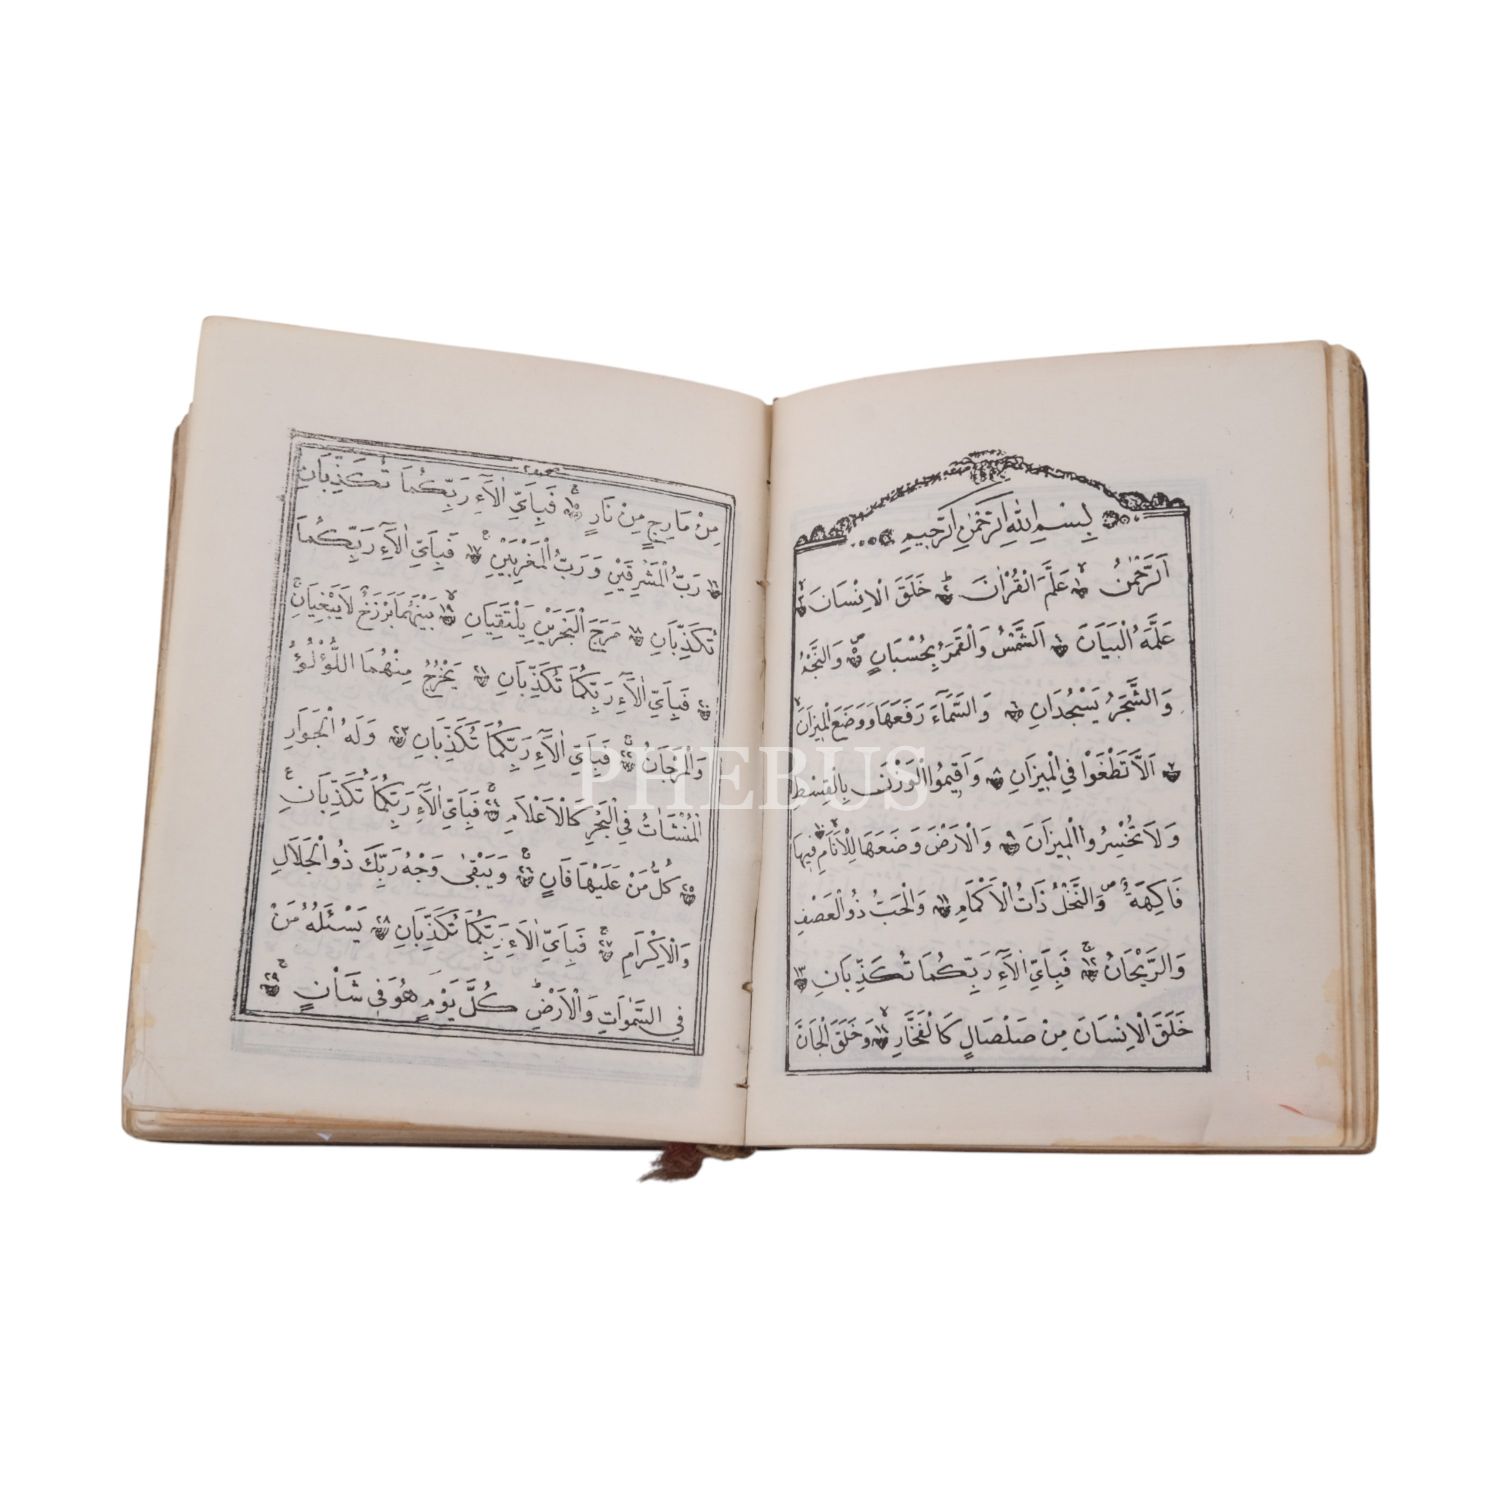 بِسْمِ اللهِ الرَّحْمٰنِ الرَّحِيمِ
اَلرَّحْمٰنُ ۙ ﴿١﴾ عَلَّمَ الْقُرْاٰنَ ؕ ﴿٢﴾ خَلَقَ الْاِنْسَانَ ۙ ﴿٣﴾
عَلَّمَهُ الْبَيَانَ ﴿٤﴾ اَلشَّمْسُ وَالْقَمَرُ بِحُسْبَانٍ ۖ ﴿٥﴾ وَالنَّجْمُ
وَالشَّجَرُ يَسْجُدَانِ ﴿٦﴾ وَالسَّمَآءَ رَفَعَهَا وَوَضَعَ الْمِيزَانَ ۙ
﴿٧﴾ اَلَّا تَطْغَوْا فِي الْمِيزَانِ ﴿٨﴾ وَاَقِيمُوا الْوَزْنَ بِالْقِسْطِ
وَلَا تُخْسِرُوا الْمِيزَانَ ﴿٩﴾ وَالْاَرْضَ وَضَعَهَا لِلْاَنَامِ ۙ ﴿١٠﴾ فِيهَا
فَاكِهَةٌ ۖ وَالنَّخْلُ ذَاتُ الْاَكْمَامِ ﴿١١﴾ وَالْحَبُّ ذُو الْعَصْفِ
وَالرَّيْحَانُ ۚ ﴿١٢﴾ فَبِاَيِّ اٰلَآءِ رَبِّكُمَا تُكَذِّبَانِ ﴿١٣﴾
خَلَقَ الْاِنْسَانَ مِنْ صَلْصَالٍ كَالْفَخَّارِ ۙ ﴿١٤﴾ وَخَلَقَ الْجَانَّ
مِنْ مَارِجٍ مِنْ نَارٍ ۚ ﴿١٥﴾ فَبِاَيِّ اٰلَآءِ رَبِّكُمَا تُكَذِّبَانِ
﴿١٦﴾ رَبُّ الْمَشْرِقَيْنِ وَرَبُّ الْمَغْرِبَيْنِ ۚ ﴿١٧﴾ فَبِاَيِّ اٰلَآءِ رَبِّكُمَا
تُكَذِّبَانِ ﴿١٨﴾ مَرَجَ الْبَحْرَيْنِ يَلْتَقِيَانِ ۙ ﴿١٩﴾ بَيْنَهُمَا بَرْزَخٌ لَا يَبْغِيَانِ ۚ
﴿٢٠﴾ فَبِاَيِّ اٰلَآءِ رَبِّكُمَا تُكَذِّبَانِ ﴿٢١﴾ يَخْرُجُ مِنْهُمَا اللُّؤْلُؤُ
وَالْمَرْجَانُ ۚ ﴿٢٢﴾ فَبِاَيِّ اٰلَآءِ رَبِّكُمَا تُكَذِّبَانِ ﴿٢٣﴾ وَلَهُ الْجَوَارِ
الْمُنْشَاٰتُ فِي الْبَحْرِ كَالْاَعْلَامِ ۚ ﴿٢٤﴾ فَبِاَيِّ اٰلَآءِ رَبِّكُمَا تُكَذِّبَانِ ۚ
﴿٢٥﴾ كُلُّ مَنْ عَلَيْهَا فَانٍ ۚ ﴿٢٦﴾ وَيَبْقٰى وَجْهُ رَبِّكَ ذُو الْجَلَالِ
وَالْاِكْرَامِ ۚ ﴿٢٧﴾ فَبِاَيِّ اٰلَآءِ رَبِّكُمَا تُكَذِّبَانِ ﴿٢٨﴾ يَسْئَلُهُ مَنْ
فِي السَّمٰوَاتِ وَالْاَرْضِ ؕ كُلَّ يَوْمٍ هُوَ فِي شَاْنٍ ۚ ﴿٢٩﴾
PHEBUS